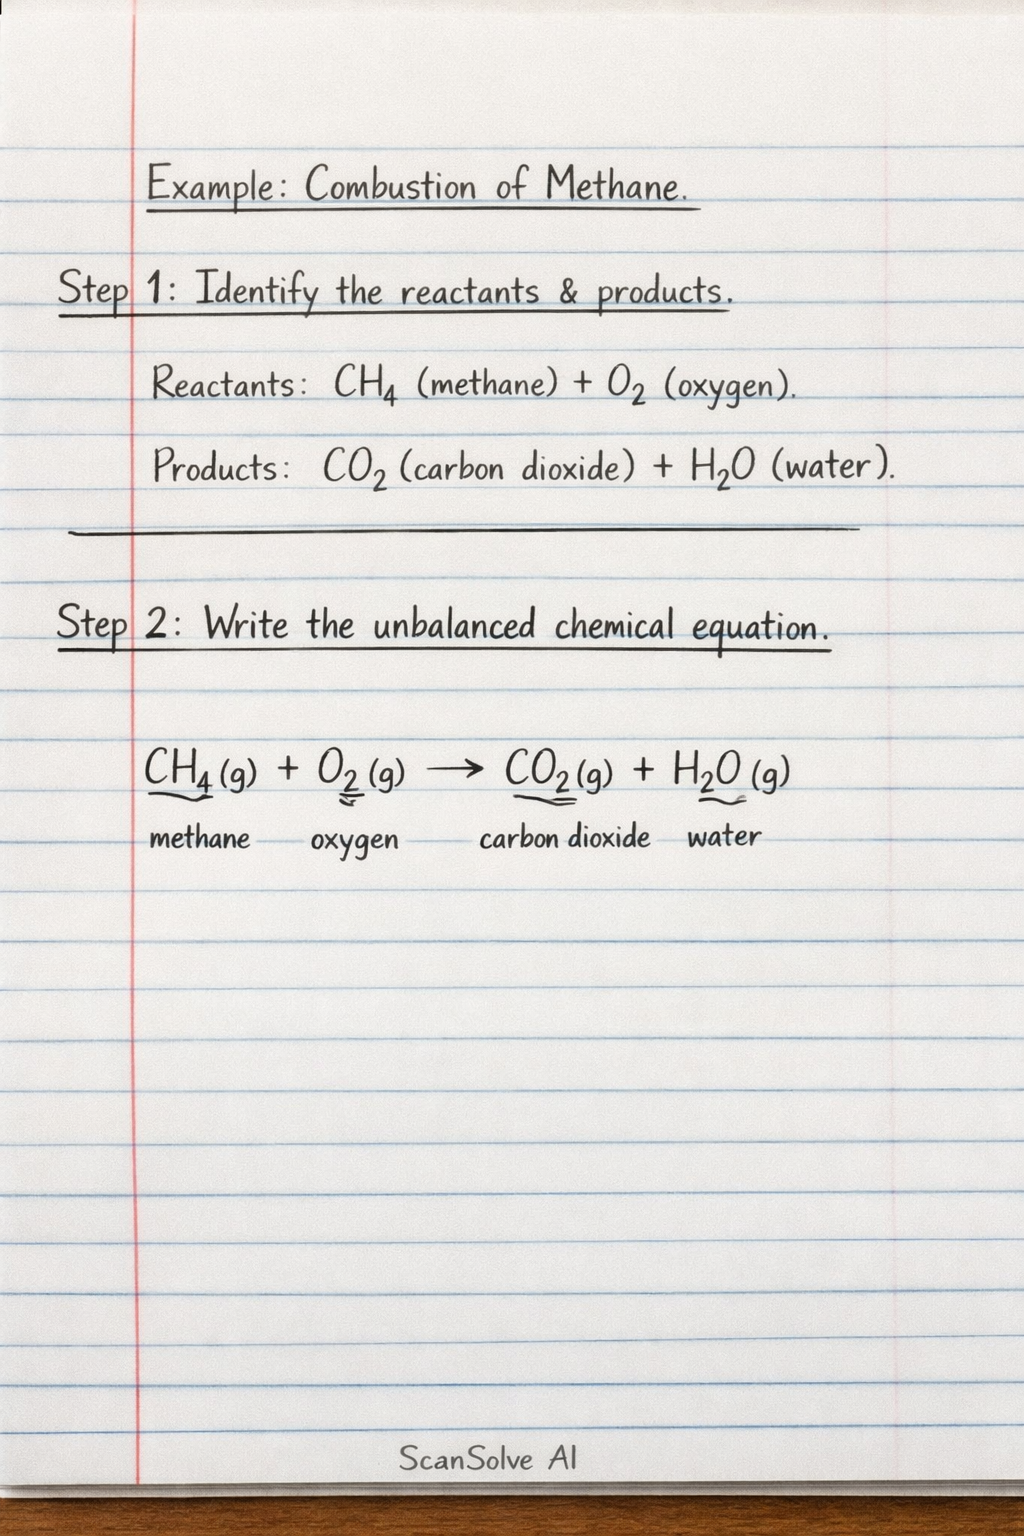 Example: Combustion of Methane.
Step 1: Identify the reactants & products.
Reactants: CH₄ (methane) + O₂ (oxygen).
Products: CO₂ (carbon dioxide) + H₂O (water).
Step 2: Write the unbalanced chemical equation.
CH₄(g) + O₂(g) → CO₂(g) + H₂O(g)
methane oxygen carbon dioxide water
ScanSolve AI